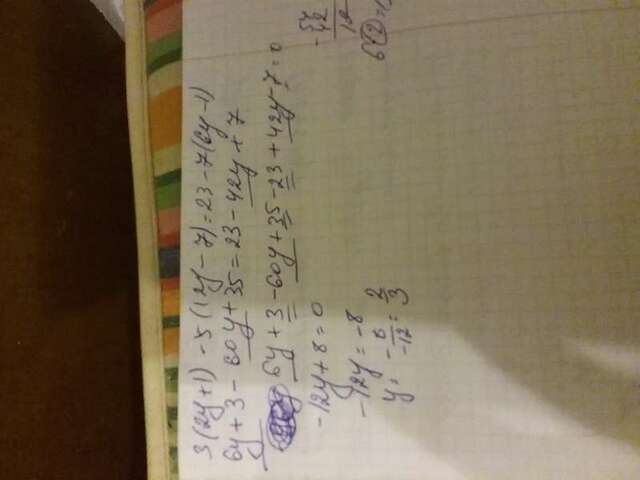 3(2y+1) -5(12y-7)=23-7(6y-1)
6y+3-60y+35=23-42y+7
6y+3-60y+35-23+42y-7=0
-12y+8=0
-12y=-8
y= -8/-12 = 2/3
-54
42
12